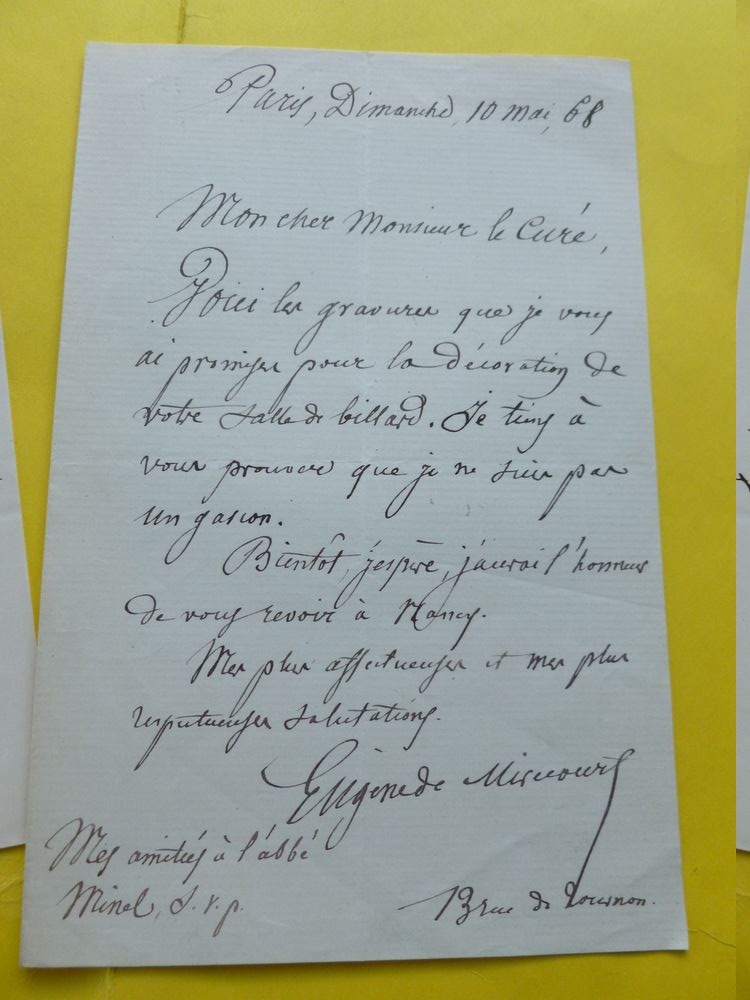 Paris, Dimanche, 10 mai, 68
Mon cher Monsieur le Curé,
Voici les gravures que je vous
ai promises pour la décoration de
votre salle de billard. Je tiens à
vous prouver que je ne suis pas
un gascon.
Bientôt, j'espère, j'aurai l'honneur
de vous revoir à Nancy.
Mes plus affectueuses et mes plus
respectueuses salutations.
Eugène de Mirecourt
Mes amitiés à l'abbé
Minel, s.v.p.
13 rue de Tournon.